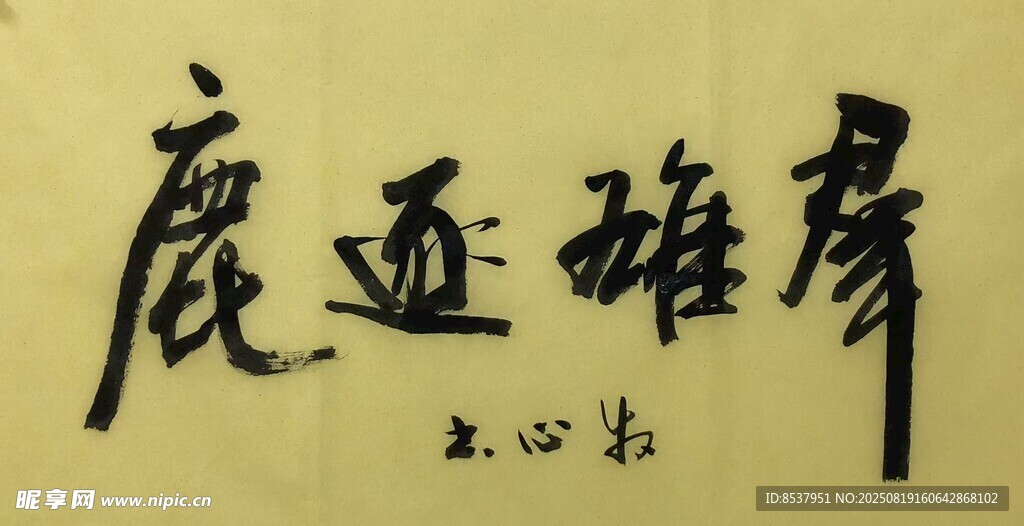 群雄逐鹿
牧心书
昵享网 www.nipic.cn
ID:8537951 NO:20250819160642868102